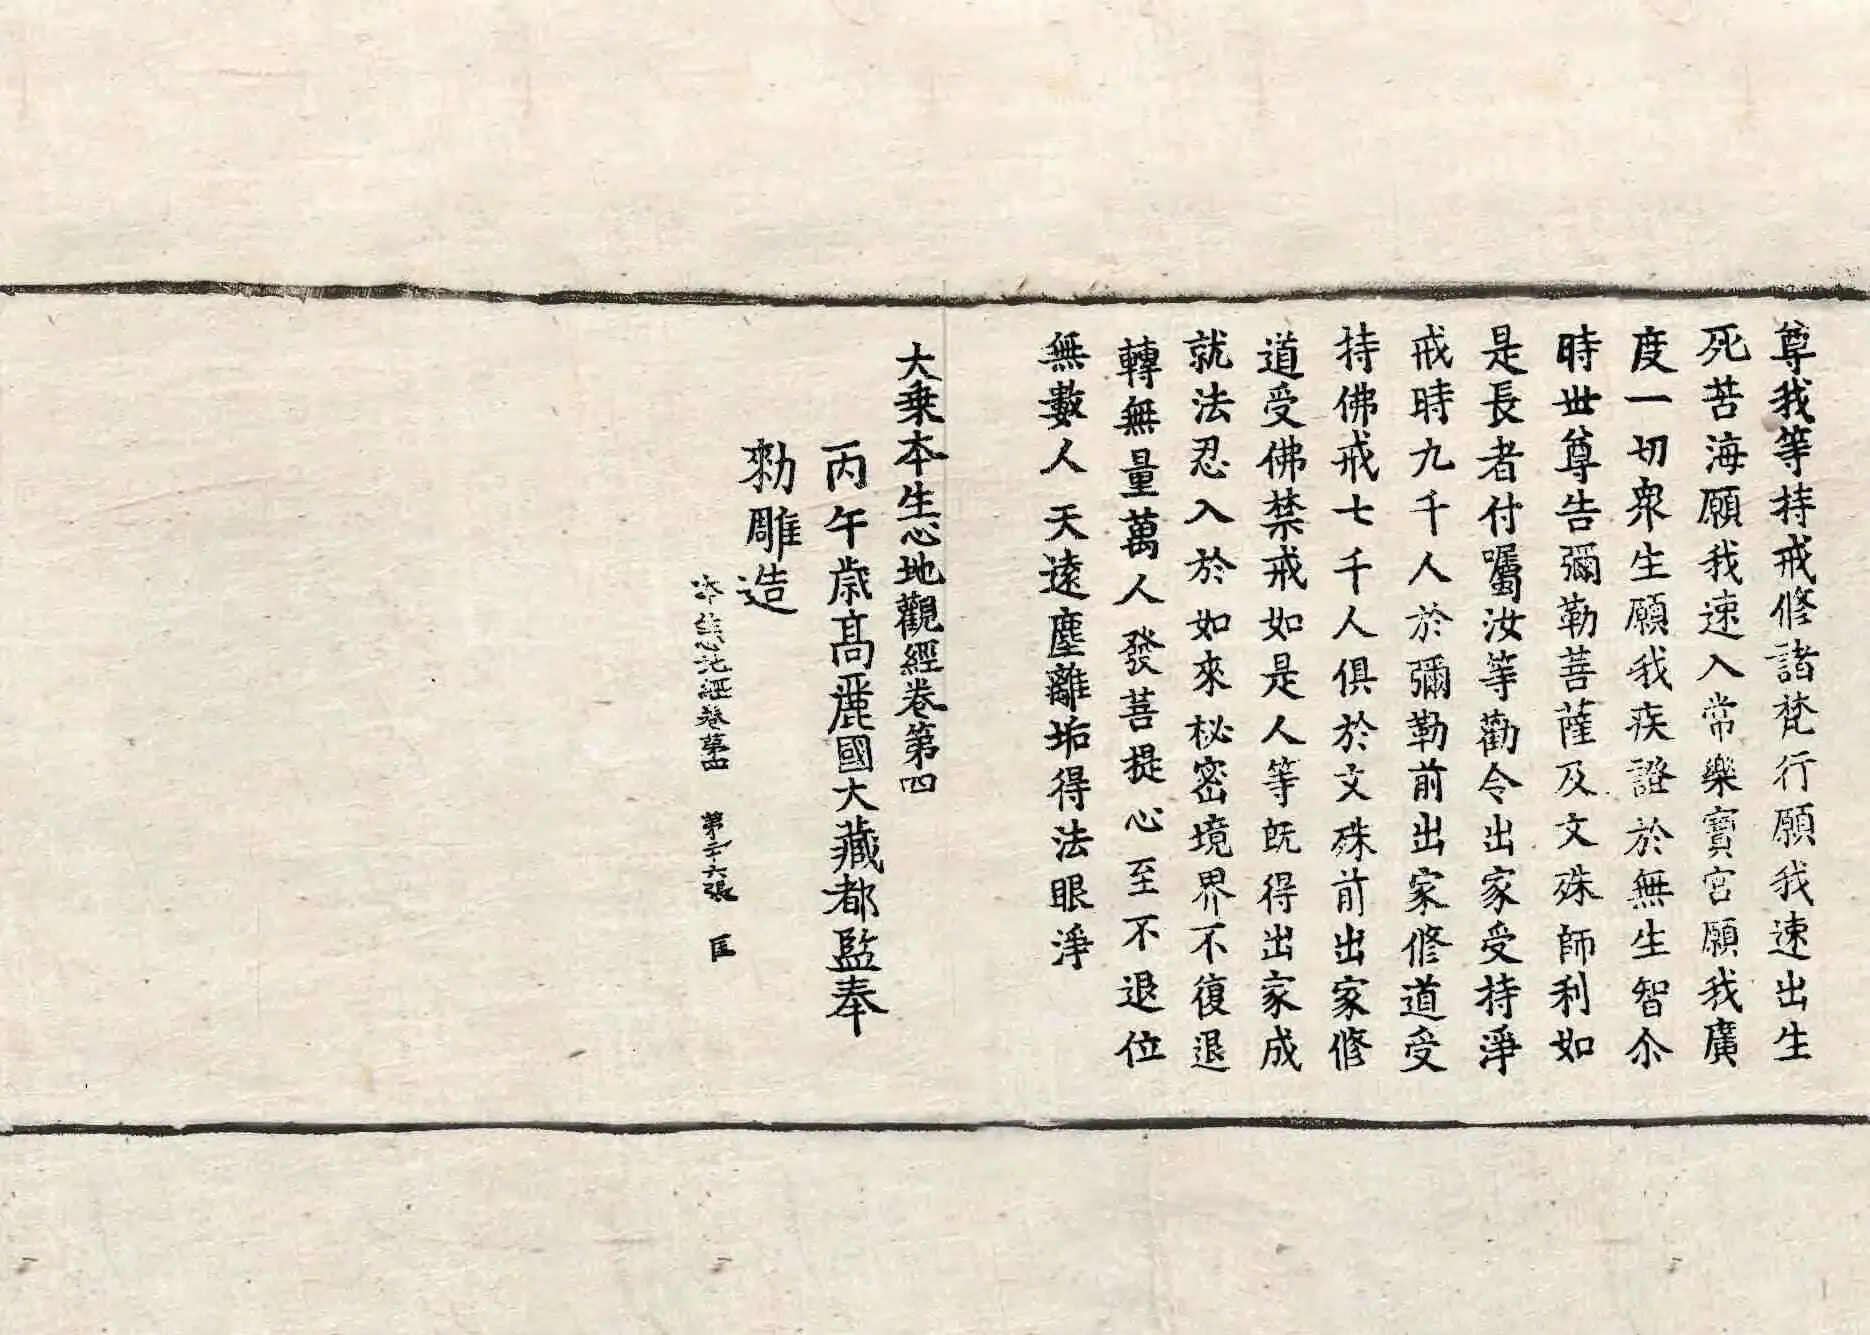 尊我等持戒修諸梵行願我速出生
死苦海願我速入常樂寶宮願我廣
度一切衆生願我疾證於無生智尒
時世尊告彌勒菩薩及文殊師利如
是長者付囑汝等勸令出家受持淨
戒時九千人於彌勒前出家修道受
持佛戒七千人俱於文殊前出家修
道受佛禁戒如是人等既得出家成
就法忍入於如來秘密境界不復退
轉無量萬人發菩提心至不退位
無數人天遠塵離垢得法眼淨
大乗本生心地觀經卷第四
丙午歳高麗國大藏都監奉
勑雕造
本生心地經卷第四 第二十六張 匡